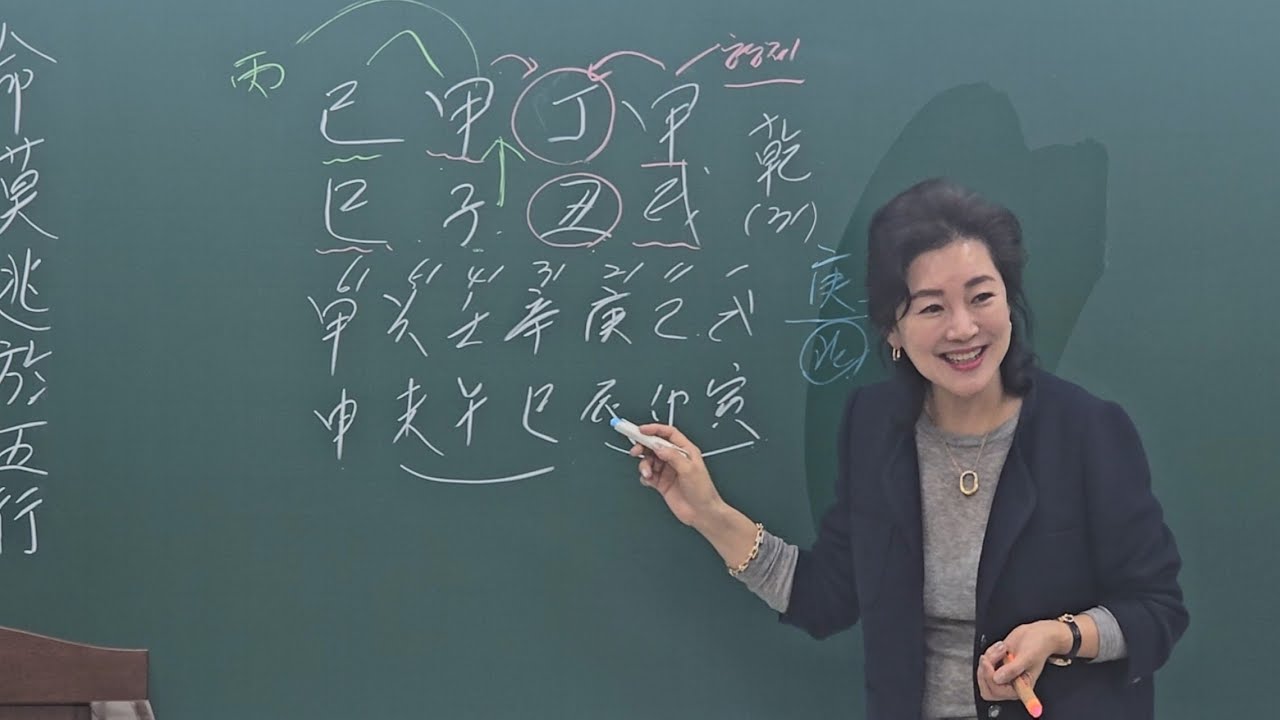 命莫逃於五行
丙
己 甲 丁 甲 乾
巳 子 丑 戌 (31)
61 51 41 31 21 11 1
甲 癸 壬 辛 庚 己 戊
申 未 午 巳 辰 卯 寅
庚